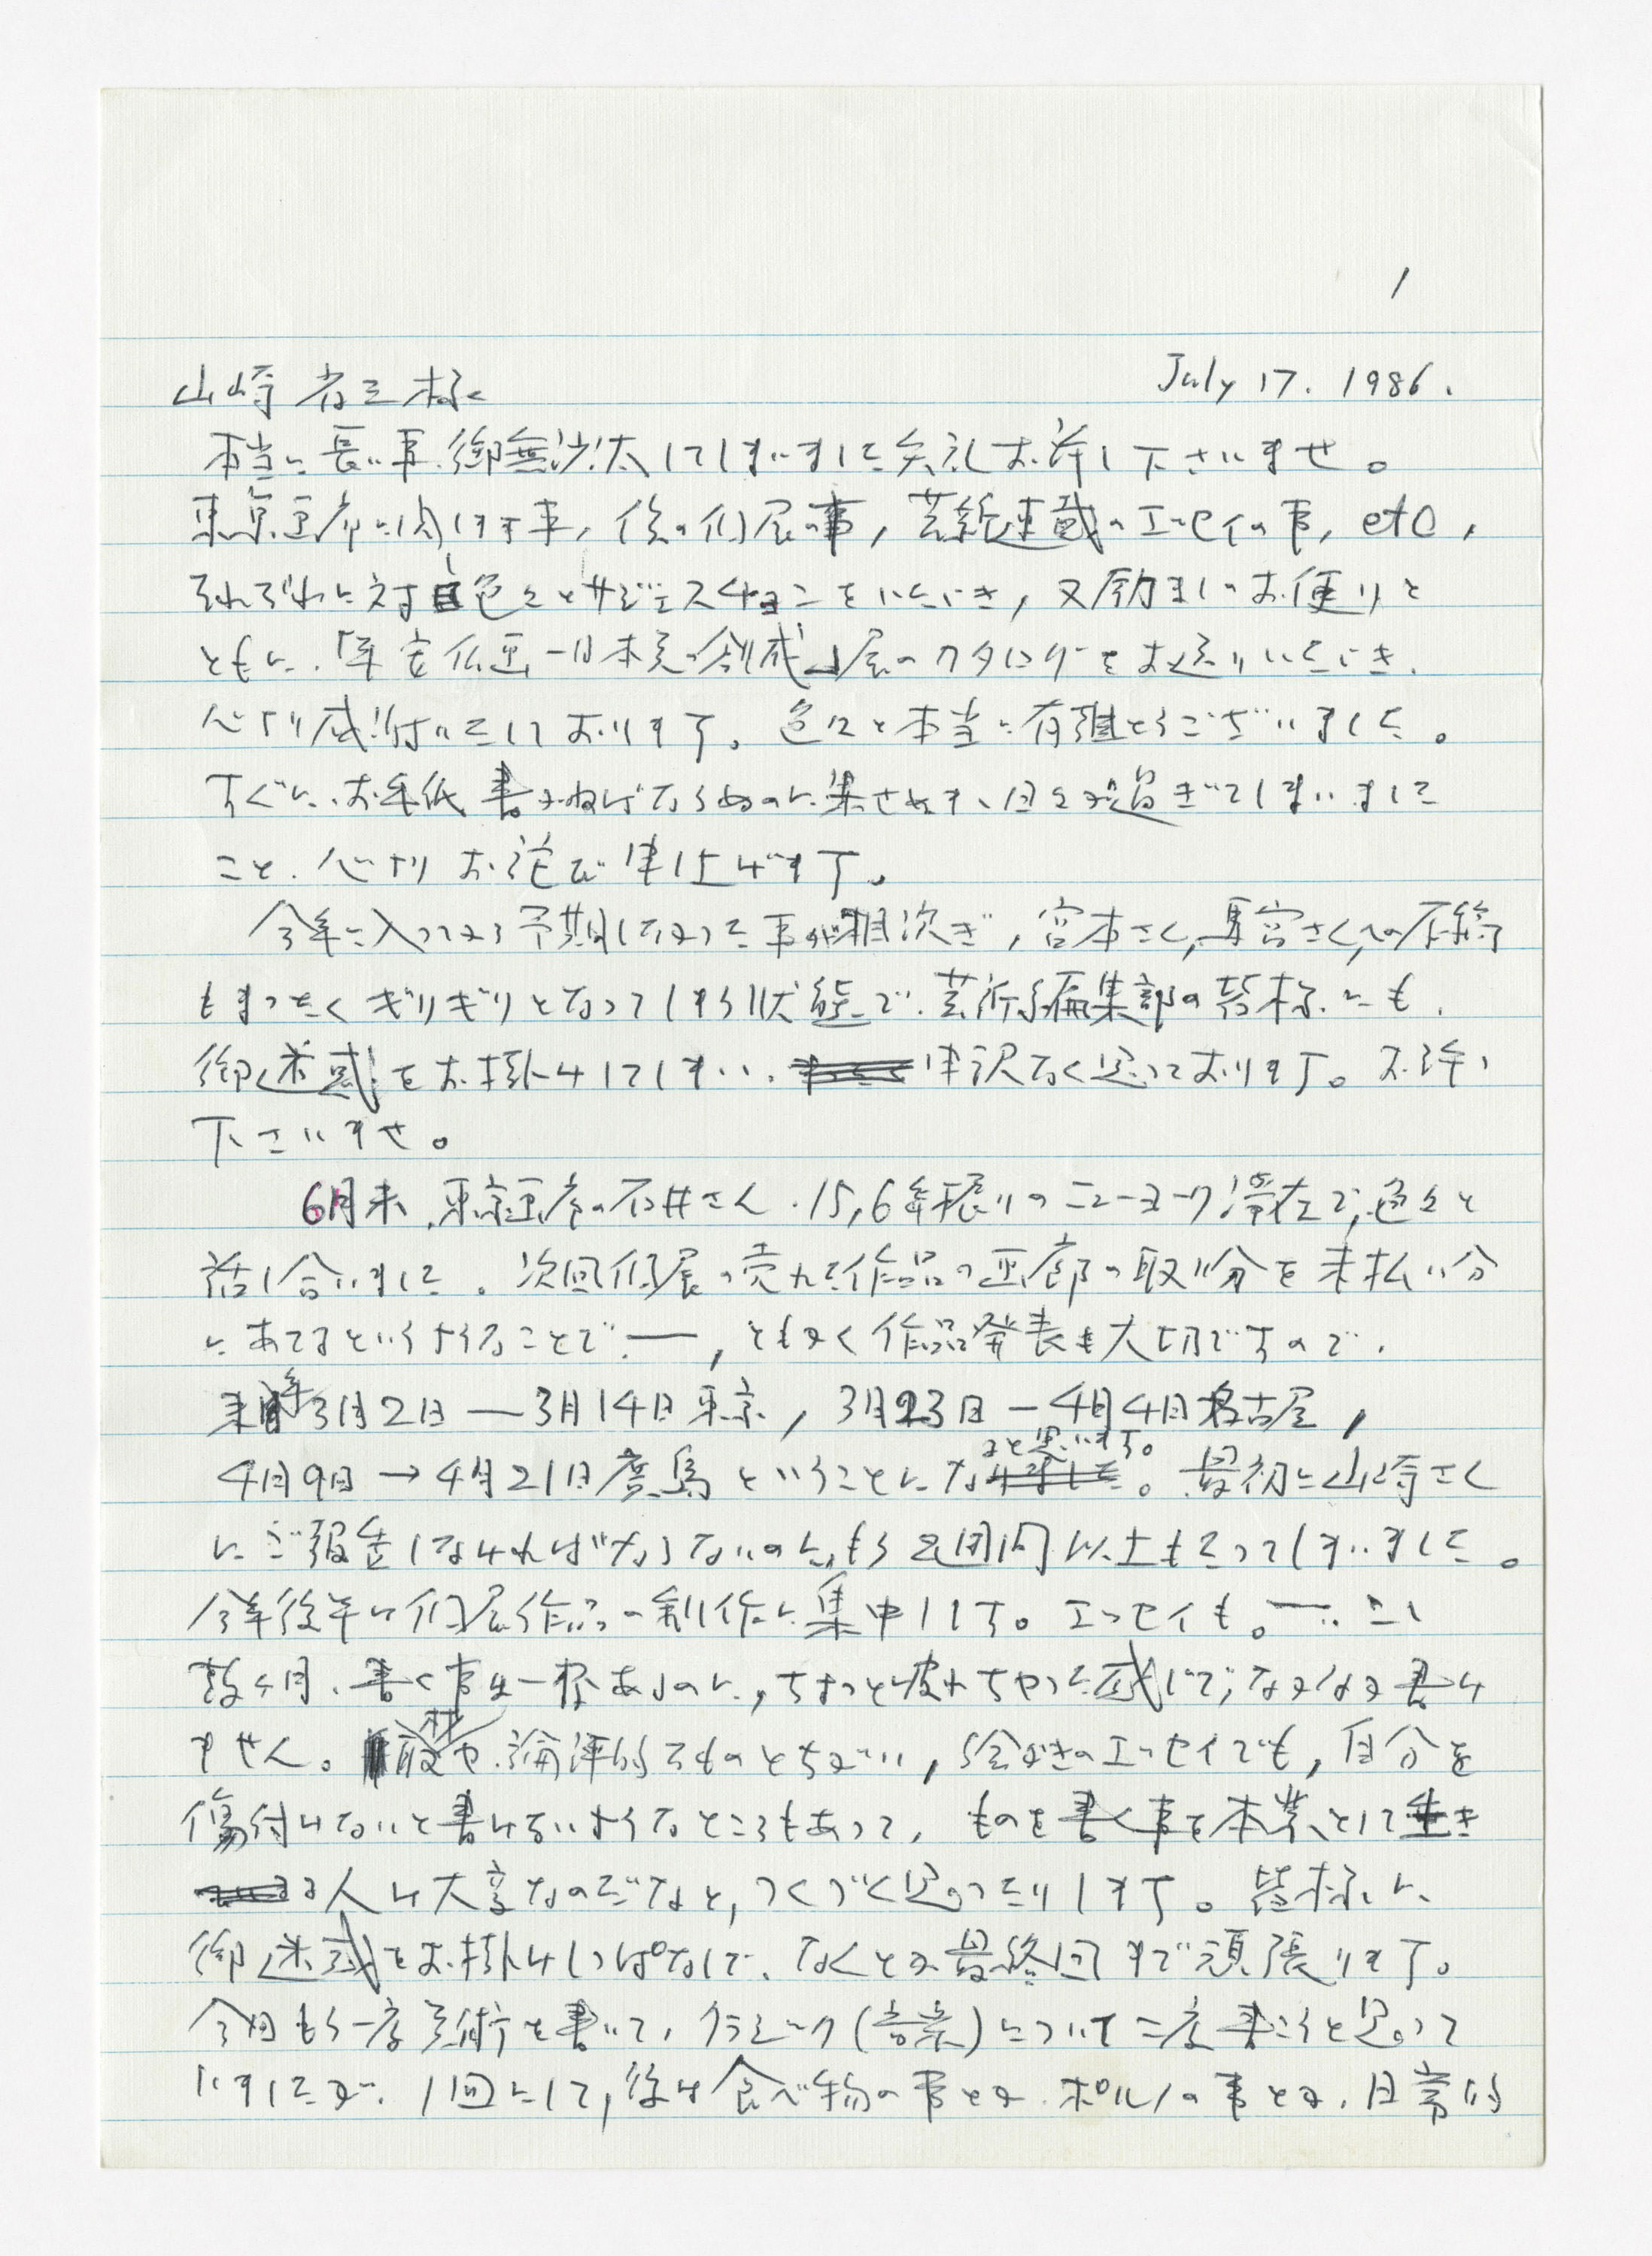 1
July 17. 1986.
山崎省三様
本当に長い事、御無沙汰してしまいました失礼お許し下さいませ。
東京画廊に関します事, 後の個展の事, 芸新連載のエッセイの事, etc,
それぞれに対し色々とサジェスチョンをいただき, 又励ましのお便りと
ともに、「平安仏画―日本美の創成」展のカタログをお送りいただき、
心より感謝いたしております。色々と本当に有難とうございました。
すぐに、お手紙書かねばならぬのに果せぬまま、日々が過ぎてしまいました
こと、心より お詫び申し上げます。
今年に入ってから予期しなかった事が相次ぎ, 宮本さん, 馬宮さんへの原稿
もまったくギリギリとなってしまう状態で、芸新編集部の皆様にも、
御迷惑をお掛けしてしまい、申訳なく思っております。お許し
下さいませ。
6月末、東京画廊の石井さん、15,6年振りのニューヨーク滞在で, 色々と
話し合いました。次回個展の売れた作品の画廊の取り分を未払い分
にあてるというようなことで ―, ともかく作品発表も大切ですので、
来年3月2日―3月14日東京, 3月23日―4月4日名古屋,
4月9日→4月21日広島ということになると思います。最初に山崎さん
にご報告しなければならないのに、もう2週間以上もたってしまいました。
今年後半は個展作品の制作に集中します。エッセイも。― ここ
数ヶ月、書く事は一杯あるのに, ちょっと疲れちゃった感じで, なかなか書け
ません。取材や、論評的なものとちがい, 絵かきのエッセイでも, 自分を
傷付けないと書けないようなところもあって, ものを書く事を本業として生き
る人は大変なのだなと, つくづく思ったりします。皆様に、
御迷惑をお掛けしっぱなしで、なんとか最終回まで頑張ります。
今回もう一度美術を書いて, クラシック(音楽)について二度書こうと思って
いましたが、1回にして, 後は食べ物の事とか、ポルノの事とか、日常的